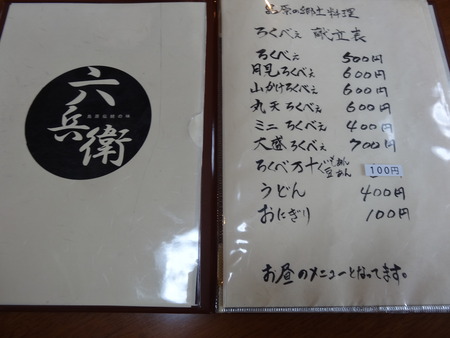 六兵衛
島原伝統の味
島原の郷土料理
ろくべえ 献立表
ろくべえ 500円
月見ろくべえ 600円
山かけろくべえ 600円
丸天ろくべえ 600円
ミニろくべえ 400円
大盛ろくべえ 700円
ろくべ万十 いもあん 豆あん 100円
うどん 400円
おにぎり 100円
お昼のメニューとなってます。